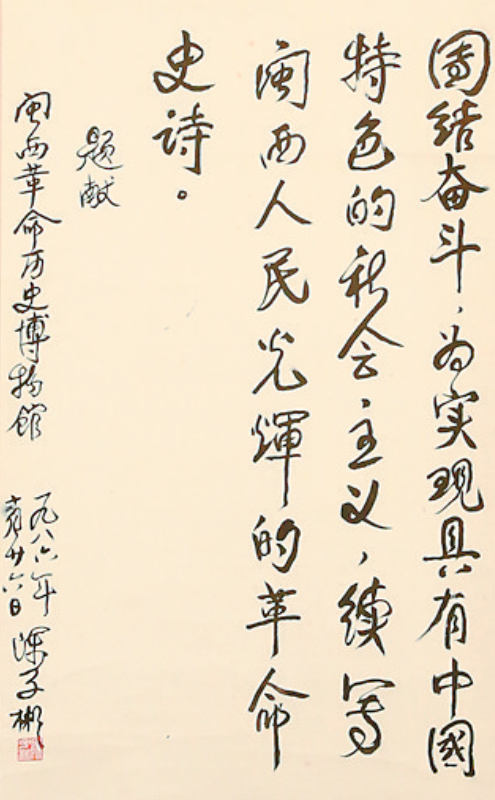 团结奋斗，为实现具有中國
特色的社会主义，续写
闽西人民光辉的革命
史诗。
题献
闽西革命历史博物馆
一九八六年
月廿六日
子彬